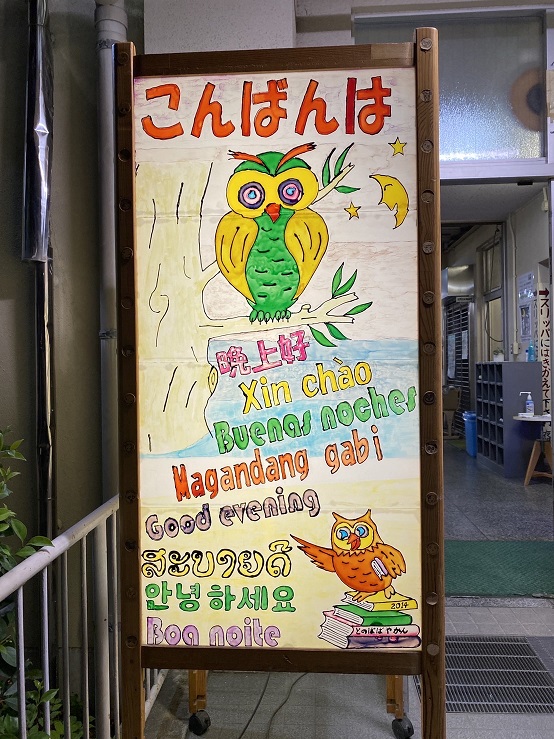 こんばんは
晩上好
Xin chào
Buenas noches
Magandang gabi
Good evening
ສະບາຍດີ
안녕하세요
Boa noite
2014
スリッパにはきかえて下